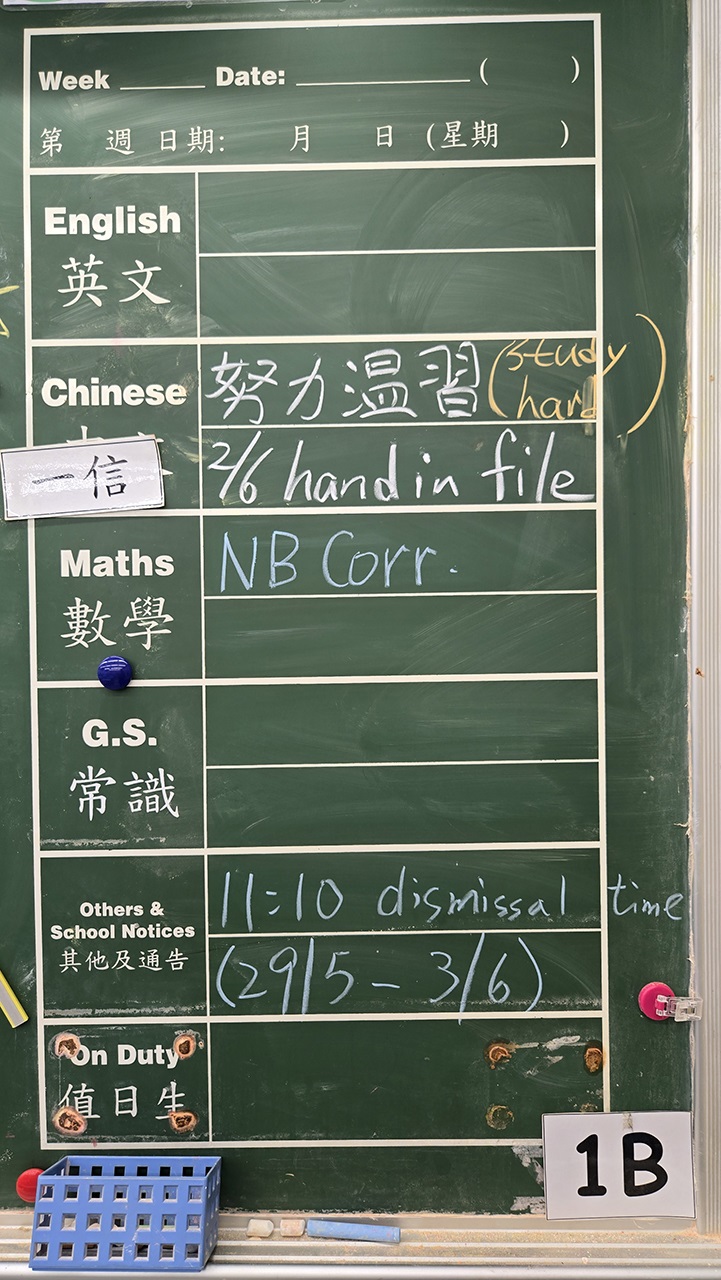 Week ______ Date: ______________ (      )
第 週 日期: 月 日 (星期 )
English
英文
Chinese
努力温習 (study hard)
一信
2/6 hand in file
Maths
數學
NB Corr.
G.S.
常識
Others &
School Notices
其他及通告
11:10 dismissal time
(29/5 - 3/6)
On Duty
值日生
1B